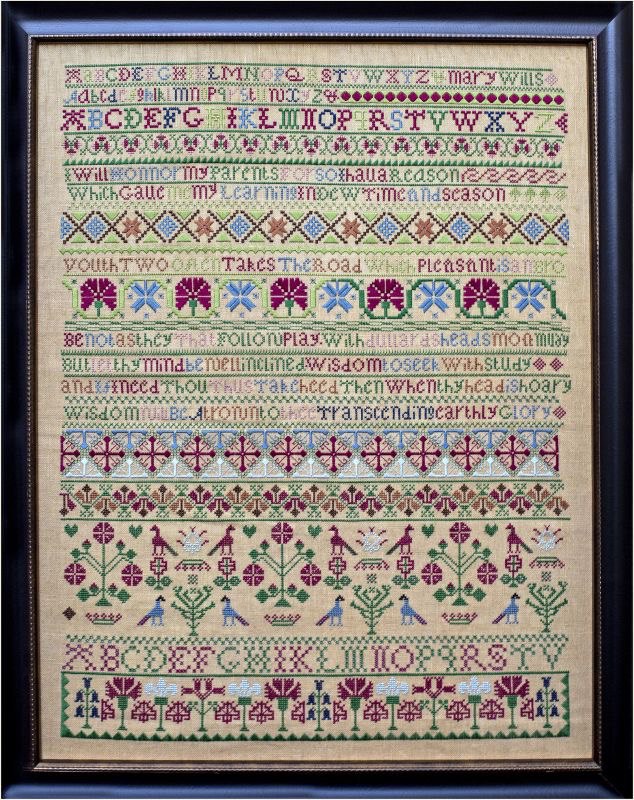 A a B C D E F G H I K L M N O P Q R S T V W X Y Z mary wills
A a b c d e f g h i k l m n o p q r s t u v w x y z
A B C D E F G H I K L M N O P q R S T V W X Y Z
I Will Honnor my Parents For so I haue Reason
Which Gaue me my Learning In Dew Time and season
youth TWO often Takes The Road Which Pleasant is an bro
Be not as they That Follow Play. With dullards heads mon muay
But let thy mind be Well inclined Wisdom to seek With study
and if I need Thou Thus Take heed Then When thy head is hoary
Wisdom Will Be A Tron unto thee Transcending earthly Glory
A B C D E F G H I K L M N O P q R S T V